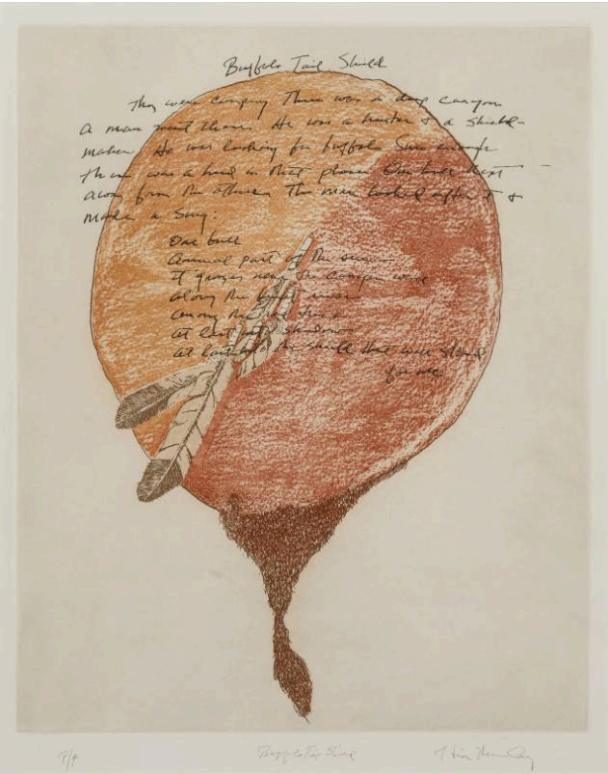 Buffalo Tail Shield
They were camping There was a deep canyon
A man went there. He was a hunter & a shield-
maker. He was looking for buffalo Sure enough
there was a herd in that place. One bull kept
away from the others. The man looked after it &
made a song:
One bull
Animal part of the sun
It grazes near the canyon wall
along the river
among the
At last its shadow
At last the shield that will stand
for me
Buffalo Tail Shield